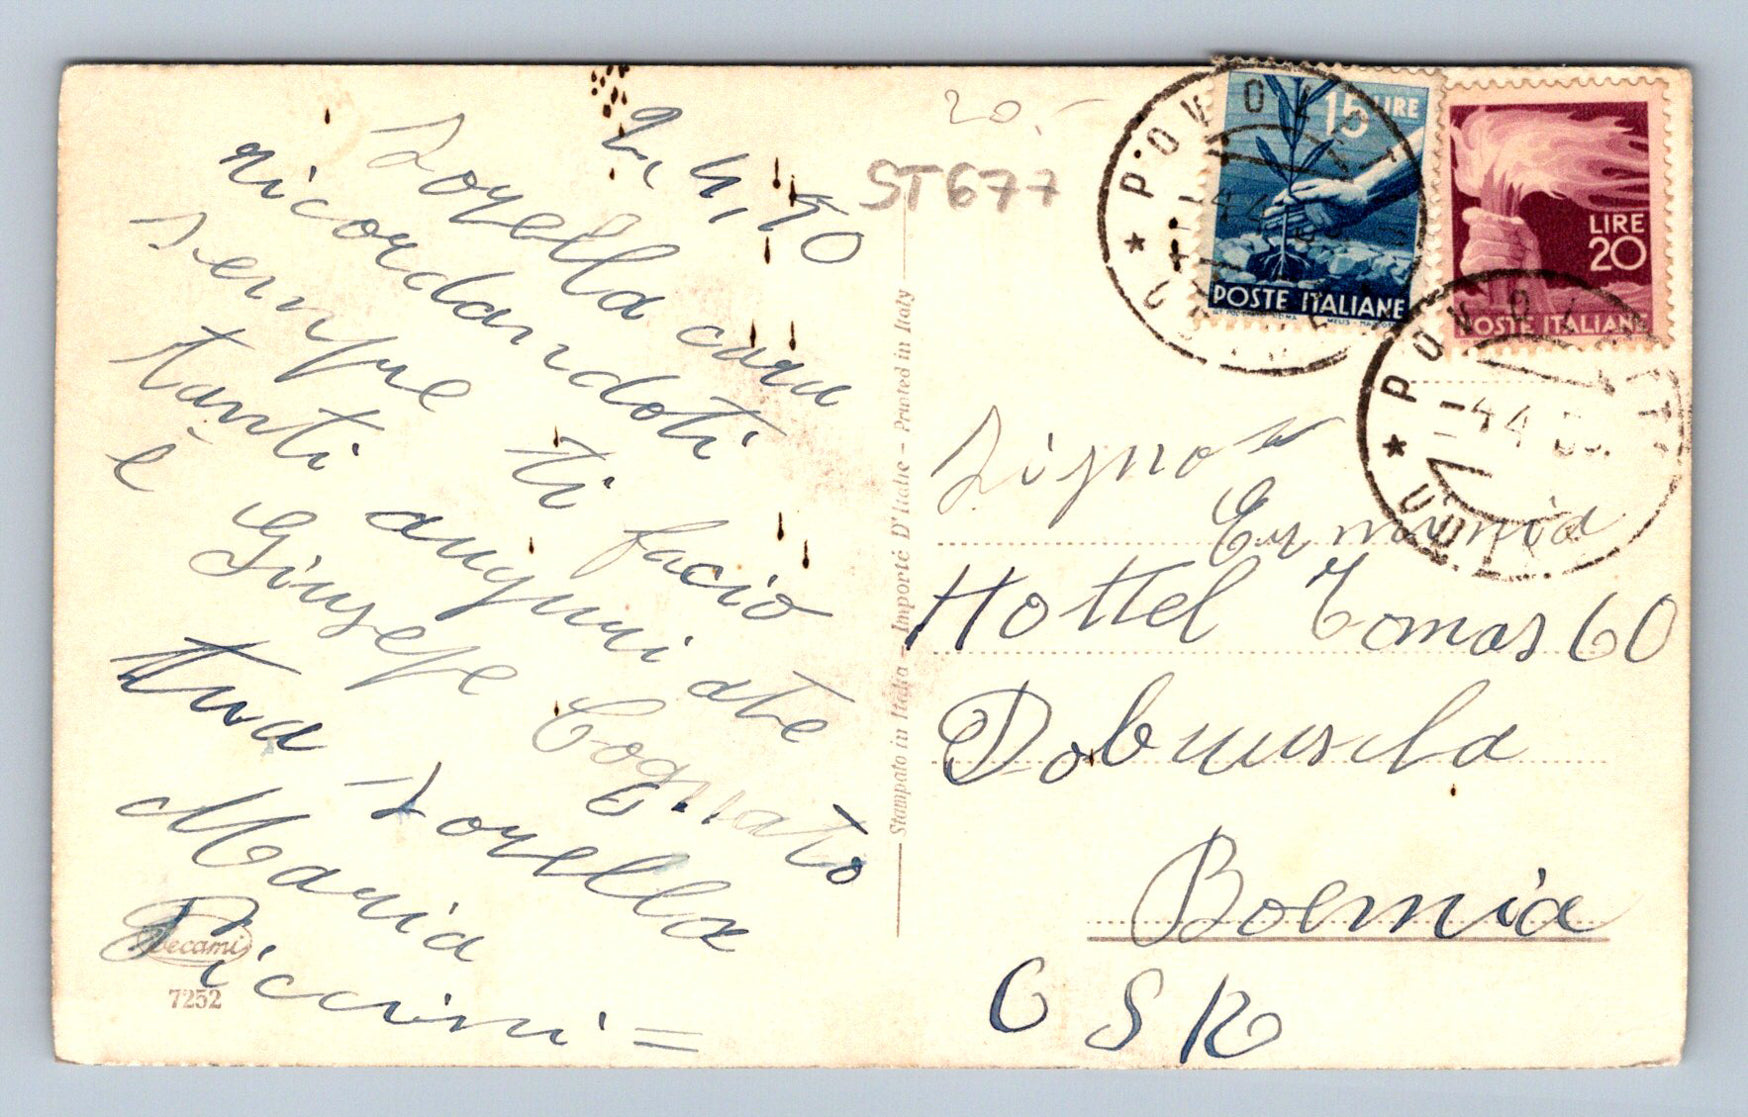 2,4,50
Sorella cara
ricordandoti
sempre ti facio
tanti auguri ate
e Giusepe Cognato
tua Sorella
Maria
Piccini =
Decami
7252
20.-
ST677
Stampato in Italia - Importé D'Italie - Printed in Italy
15 LIRE
POSTE ITALIANE
LIRE
20
POSTE ITALIANE
POVOLETTO
-4 4
* UDINE
POVOLETTO
-4 4 50
* UDINE
Signora
Erminia
Hottel Tomas 60
Boemia
CSR